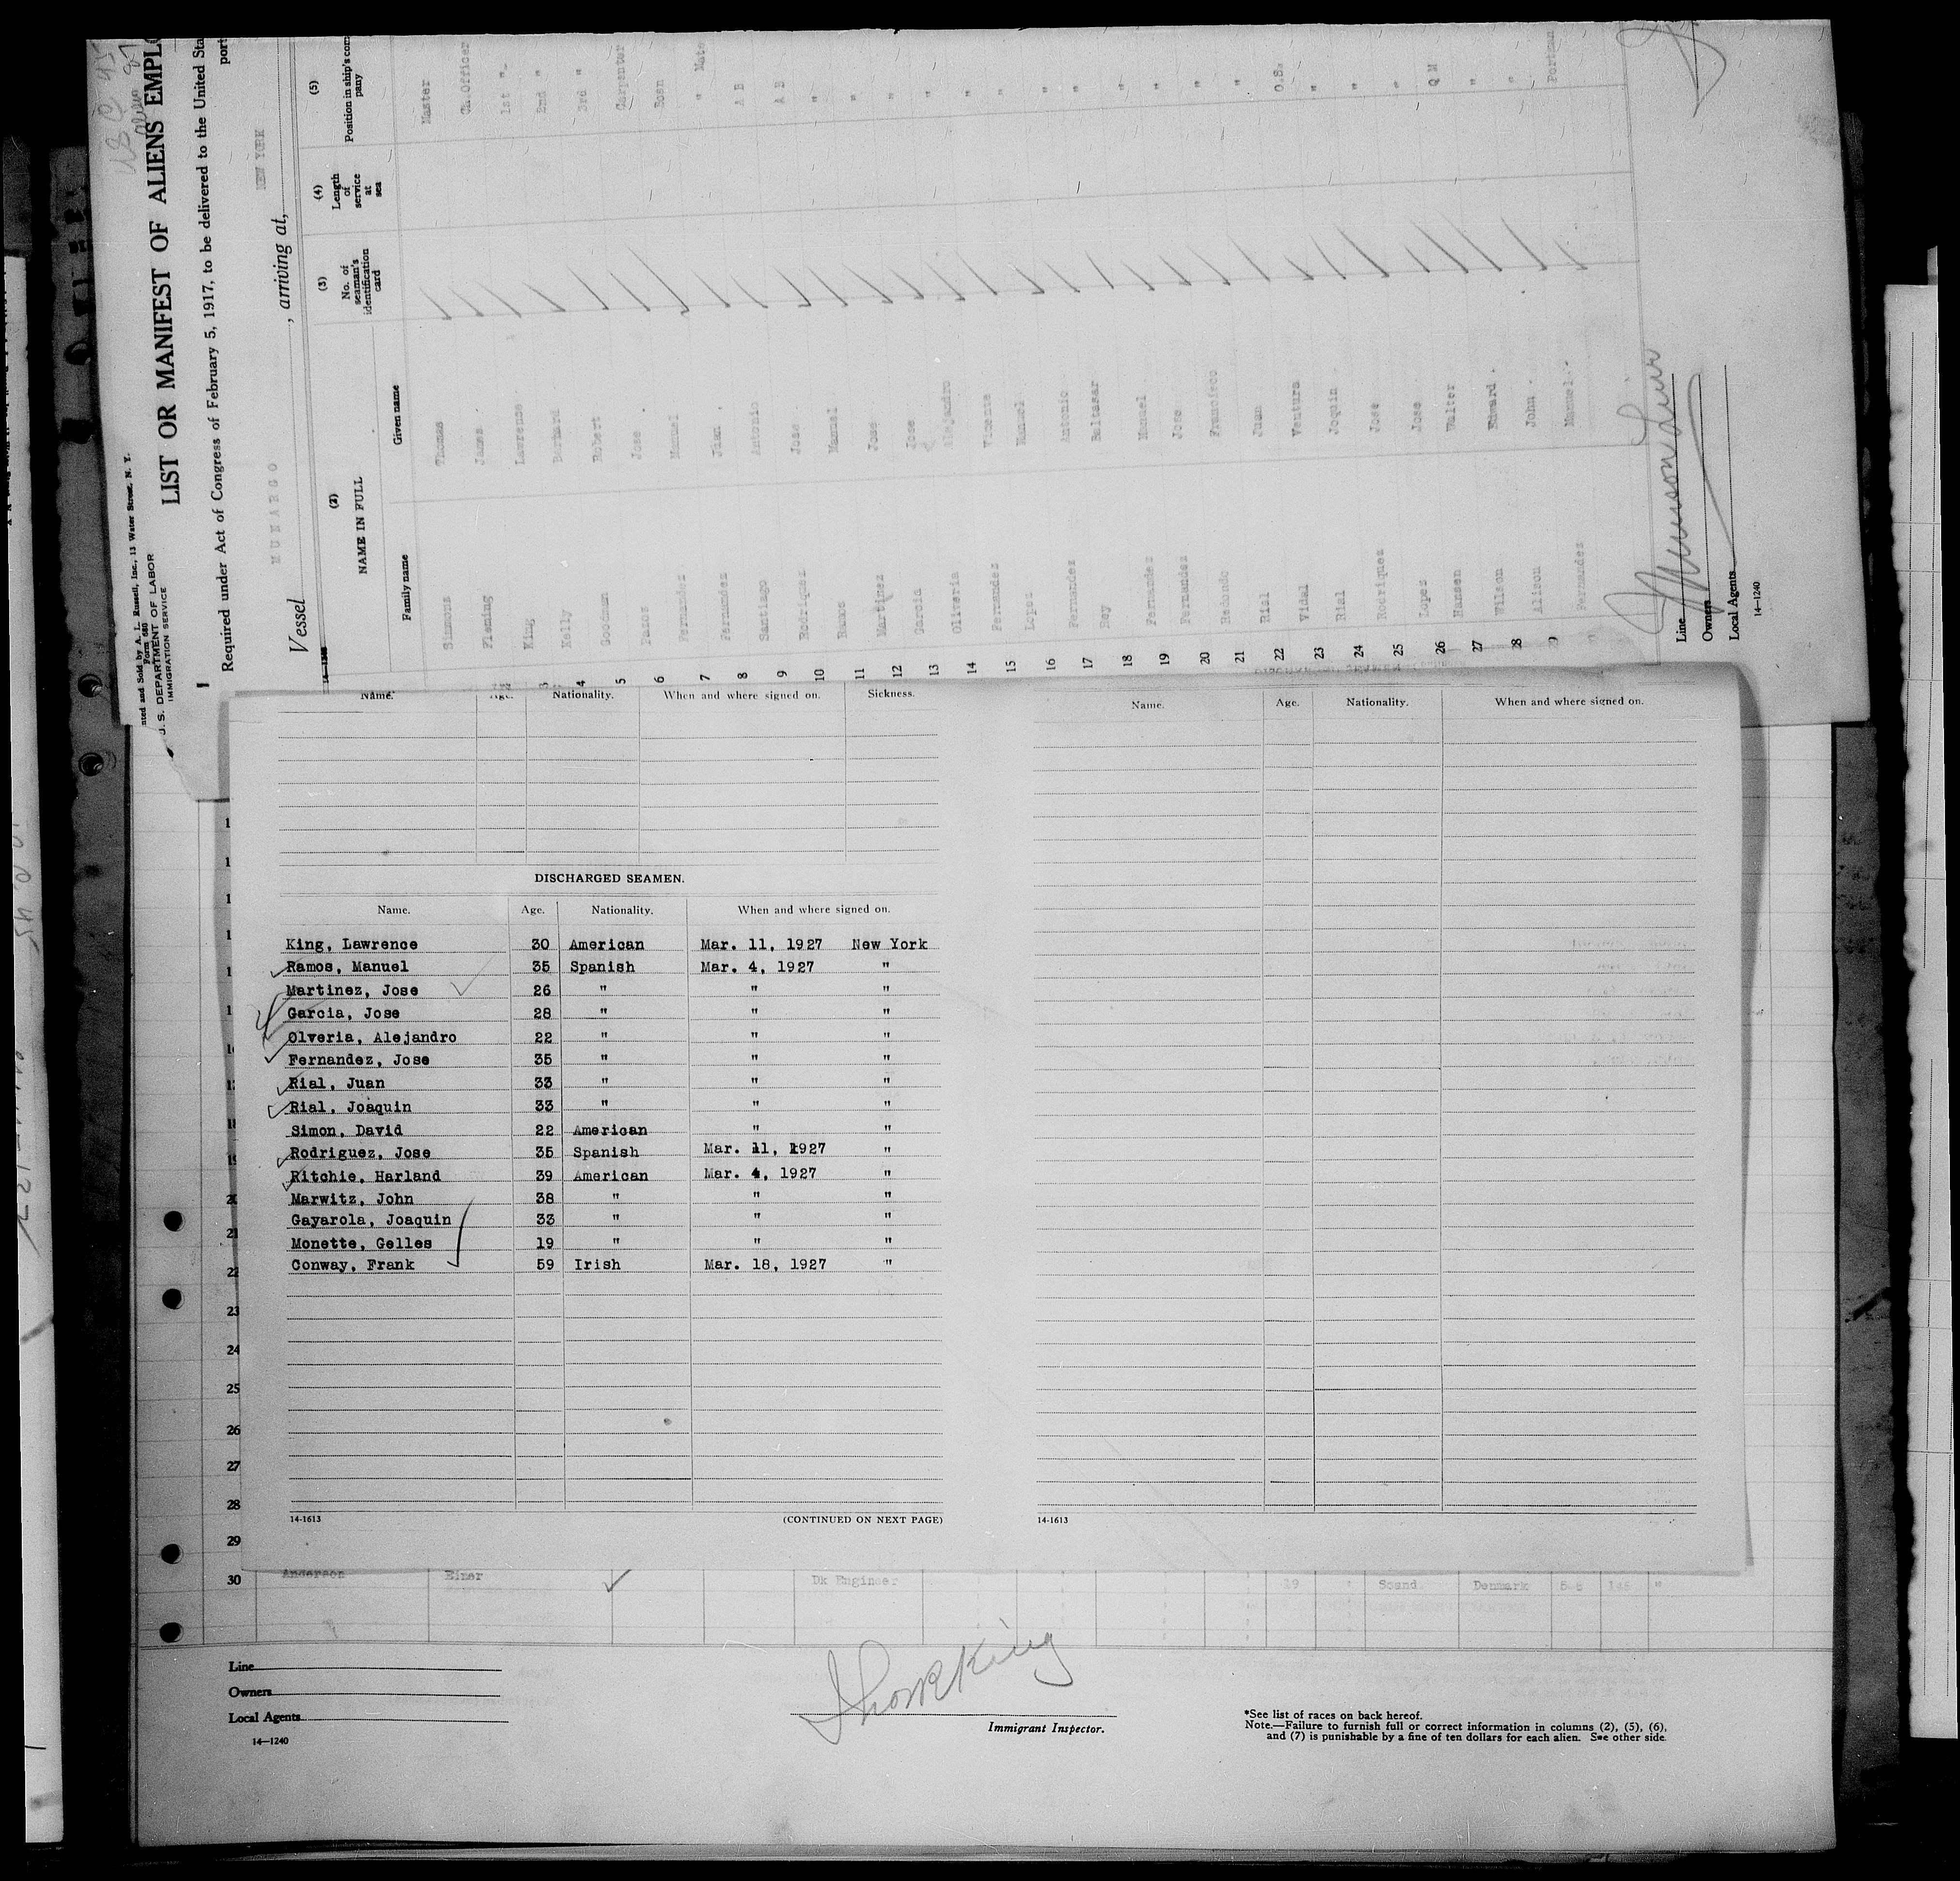 nted and Sold by A. L. Russell, Inc., 13 Water Street, N. Y.
Form 680
U. S. DEPARTMENT OF LABOR
IMMIGRATION SERVICE
LIST OR MANIFEST OF ALIENS EMPLO
Required under Act of Congress of February 5, 1917, to be delivered to the United Sta
port
Vessel MUNARGO , arriving at, NEW YORK
(2) (3) (4) (5)
NAME IN FULL No. of seaman's identification card Length of service at sea Position in ship's company
Family name Given name
Simmons Thomas Master
Fleming James Ch.Officer
King Lawrence 1st "
3 Kelly Bernard 2nd "
4 Goodman Robert 3rd "
5 Pazos Jose Carpenter
6 Fernandez Manuel Bosn
7 Fernandez Juan " Mate
8 Santiago Antonio A B
9 Rodriquez Jose A B
10 Manuel "
11 Martinez Jose "
12 Garcia Jose "
13 Oliveria Alejandro "
14 Fernandez Vicente "
15 Lopez Manuel "
16 Fernandez Antonio "
17 Rey Baltasar "
18 Fernandez Manuel "
19 Fernandez Jose "
20 Redondo Francisco "
21 Rial Juan "
22 Vidal Ventura O.S.
23 Rial Joquin "
24 Rodriquez Jose "
25 Lopez Jose "
26 Hansen Walter Q M
27 Wilson Edward "
28 Alison John "
Fernandez Manuel Portman
Line Munson Line
Owners
Local Agents
14—1240
Name. Age. Nationality. When and where signed on. Sickness.
Name. Age. Nationality. When and where signed on.
DISCHARGED SEAMEN.
Name. Age. Nationality. When and where signed on.
King, Lawrence 30 American Mar. 11, 1927 New York
Ramos, Manuel 35 Spanish Mar. 4, 1927 "
Martinez, Jose 26 " " "
Garcia, Jose 28 " " "
Olveria, Alejandro 22 " " "
Fernandez, Jose 35 " " "
Rial, Juan 33 " " "
Rial, Joaquin 33 " " "
Simon, David 22 American " "
Rodriguez, Jose 35 Spanish Mar. 11, 1927 "
Ritchie, Harland 39 American Mar. 4, 1927 "
Marwitz, John 38 " " "
Gayarola, Joaquin 33 " " "
Monette, Gelles 19 " " "
Conway, Frank 59 Irish Mar. 18, 1927 "
20
21
22
23
24
25
26
27
28
29
14-1613 (CONTINUED ON NEXT PAGE)
14-1613
30 Anderson Einer Dk Engineer 19 Scand. Denmark 5-8 "
Line
Owners
Local Agents
14—1240
Immigrant Inspector.
*See list of races on back hereof.
Note.—Failure to furnish full or correct information in columns (2), (5), (6),
and (7) is punishable by a fine of ten dollars for each alien. See other side.